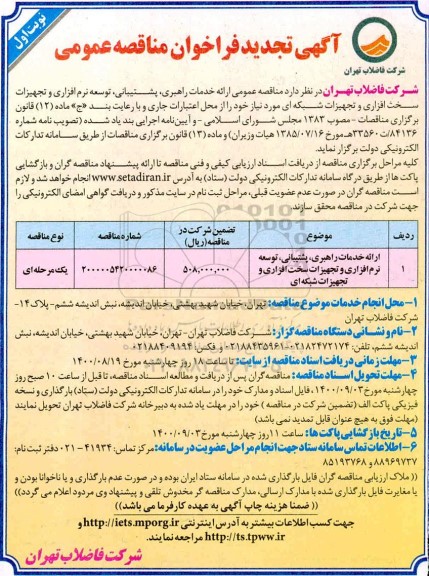 نوبت اول
آگهی تجدید فراخوان مناقصه عمومی
شرکت فاضلاب تهران
شرکت فاضلاب تهران در نظر دارد مناقصه عمومی ارائه خدمات راهبری، پشتیبانی، توسعه نرم افزاری و تجهیزات
سخت افزاری و تجهیزات شبکه ای مورد نیاز خود را از محل اعتبارات جاری و با رعایت بند «ج» ماده (۱۲) قانون
برگزاری مناقصات - مصوب ۱۳۸۳ مجلس شورای اسلامی - و آیین‌نامه اجرایی بند یاد شده (تصویب نامه شماره
۸۴۱۳۶/ت۳۳۵۶۰هـ مورخ ۱۳۸۵/۰۷/۱۶ هیات وزیران) و ماده (۱۳) قانون برگزاری مناقصات از طریق سامانه تدارکات
الکترونیکی دولت برگزار نماید.
کلیه مراحل برگزاری مناقصه از دریافت اسناد ارزیابی کیفی و فنی مناقصه تا ارائه پیشنهاد مناقصه گران و بازگشایی
پاکت ها از طریق درگاه سامانه تدارکات الکترونیکی دولت (ستاد) به آدرس www.setadiran.ir انجام خواهد شد و لازم
است مناقصه گران در صورت عدم عضویت قبلی، مراحل ثبت نام در سایت مذکور و دریافت گواهی امضای الکترونیکی را
جهت شرکت در مناقصه محقق سازند.
ردیف موضوع تضمین شرکت در مناقصه (ریال) شماره مناقصه نوع مناقصه
۱ ارائه خدمات راهبری، پشتیبانی، توسعه نرم افزاری و تجهیزات سخت افزاری و تجهیزات شبکه ای ۵۰۸,۰۰۰,۰۰۰ ۲۰۰۰۰۰۵۴۲۰۰۰۰۰۸۶ یک مرحله ای
۱- محل انجام خدمات موضوع مناقصه: تهران، خیابان شهید بهشتی، خیابان اندیشه، نبش اندیشه ششم- پلاک ۱۴-
شرکت فاضلاب تهران
۲- نام و نشانی دستگاه مناقصه گزار: شرکت فاضلاب تهران - تهران، خیابان شهید بهشتی، خیابان اندیشه، نبش
اندیشه ششم، تلفن: ۰۲۱۸۲۴۷۲۱۷۴-۰۲۱۸۸۴۳۵۹۶۱ و فکس: ۰۲۱۸۸۴۰۹۱۹۴
۳- مهلت زمانی دریافت اسناد مناقصه از سایت: تا ساعت ۱۸ روز چهارشنبه مورخ ۱۴۰۰/۰۸/۱۹
۴- مهلت تحویل اسناد مناقصه: مناقصه گران پس از دریافت و مطالعه اسناد مناقصه، تا قبل از ساعت ۱۰ صبح روز
چهارشنبه مورخ ۱۴۰۰/۰۹/۰۳، فایل اسناد و مدارک خود را در سامانه تدارکات الکترونیکی دولت (ستاد) بارگذاری و نسخه
فیزیکی پاکت الف (تضمین شرکت در مناقصه) خود را در مهلت یاد شده به دبیرخانه شرکت فاضلاب تهران تحویل نمایند
(مهلت فوق به هیچ عنوان قابل تمدید نمی باشد)
۵- تاریخ بازگشایی پاکت ها: ساعت ۱۱ روز چهارشنبه مورخ ۱۴۰۰/۰۹/۰۳
۶- اطلاعات تماس سامانه ستاد جهت انجام مراحل عضویت در سامانه: مرکز تماس: ۴۱۹۳۴-۰۲۱ دفتر ثبت نام:
۸۸۹۶۹۷۳۷ و ۸۵۱۹۳۷۶۸
(( ملاک ارزیابی مناقصه گران فایل بارگذاری شده در سامانه ستاد ایران بوده و در صورت عدم بارگذاری و یا ناخوانا بودن و
یا مغایرت فایل بارگذاری شده با مدارک ارسالی، مدارک مناقصه گر مخدوش تلقی و پیشنهاد وی مردود اعلام می گردد))
(( ضمنا هزینه چاپ آگهی به عهده کارفرما می باشد))
جهت کسب اطلاعات بیشتر به آدرس اینترنتی http://iets.mporg.ir و
http://ts.tpww.ir مراجعه نمایند.
شرکت فاضلاب تهران